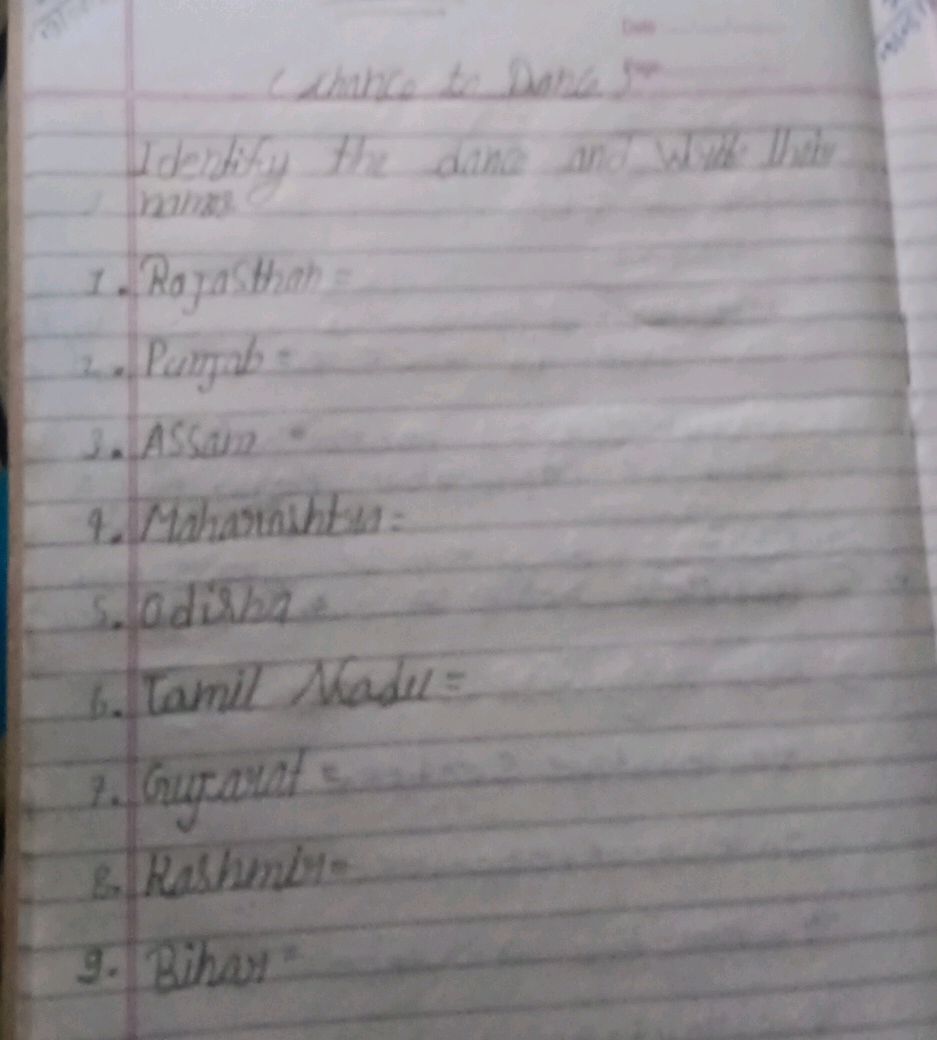 Date
(chance to Dance)
Identify the dance and write their
names
1. Rajasthan =
2. Punjab =
3. Assam =
4. Maharashtra =
5. Odisha =
6. Tamil Nadu =
7. Gujarat =
8. Kashmir =
9. Bihar =